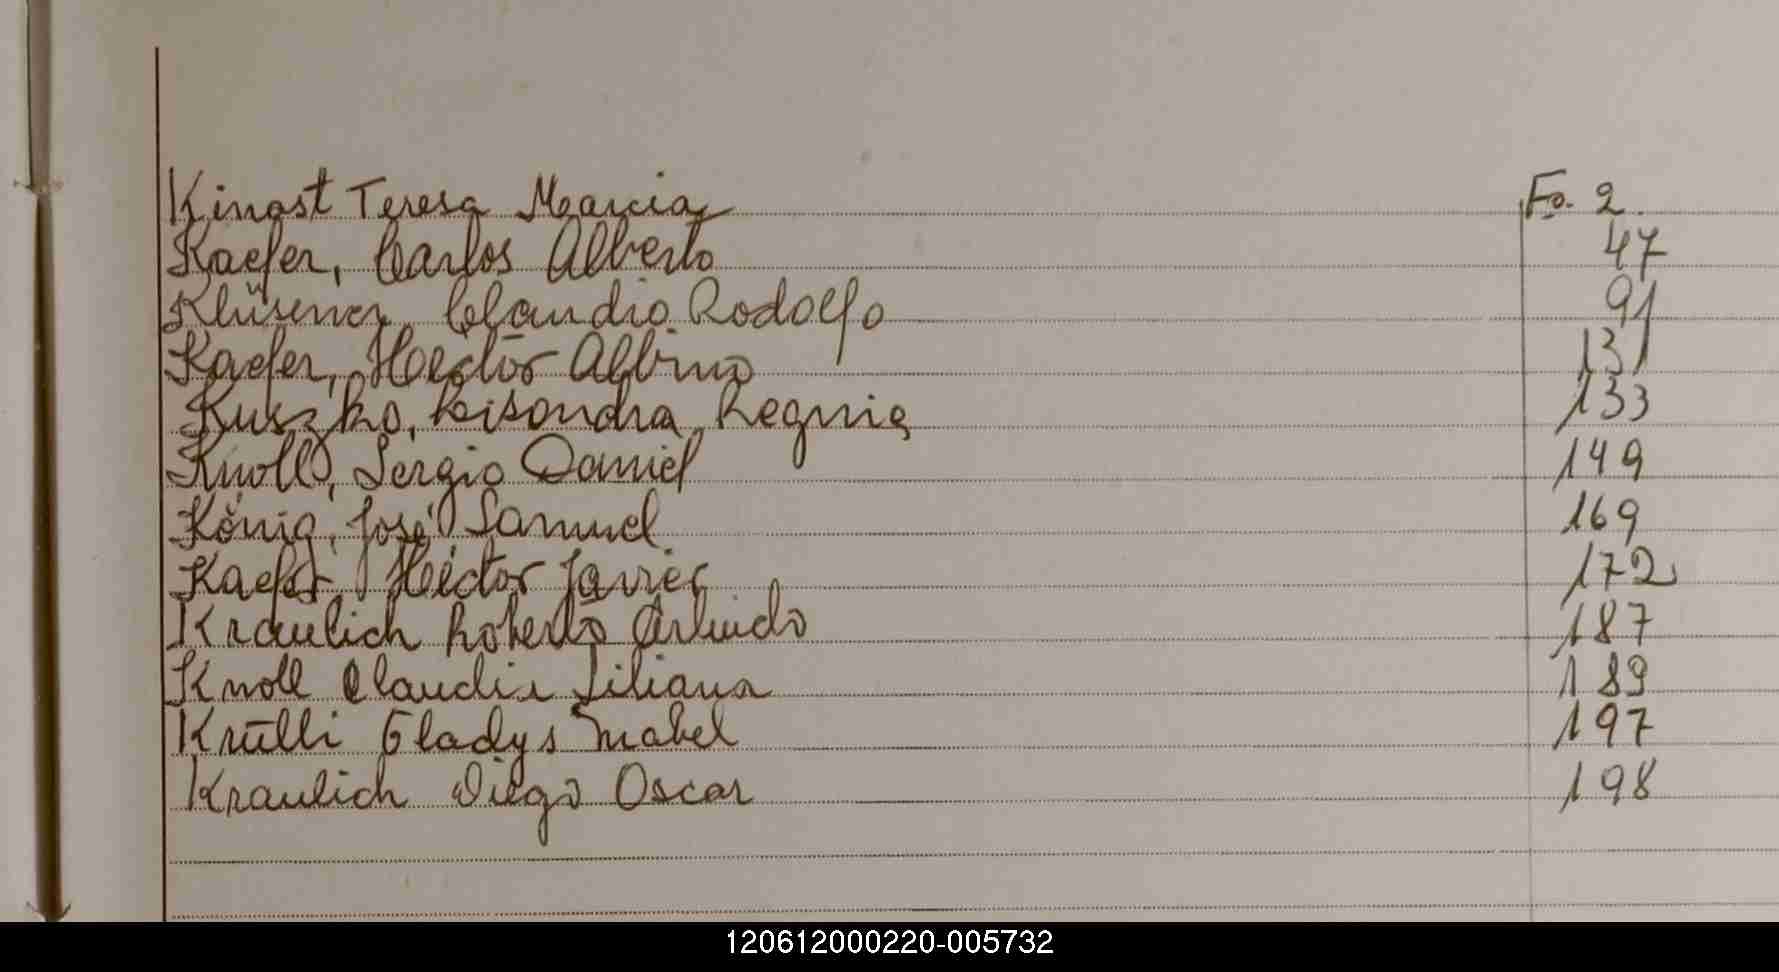 Kinast Teresa Marcia Fo. 2
Kaefer, Carlos Alberto 47
Klüsener, Claudio Rodolfo 91
Kaefer, Hector Albino 131
Kuszko, Lisandra Regnia 133
Knoll, Sergio Daniel 149
König, José Samuel 169
Kaefer Héctor Javier 172
Kraulich Roberto Arlindo 187
Knoll Claudia Liliana 189
Krülli Gladys Mabel 197
Kraulich Diego Oscar 198
120612000220-005732